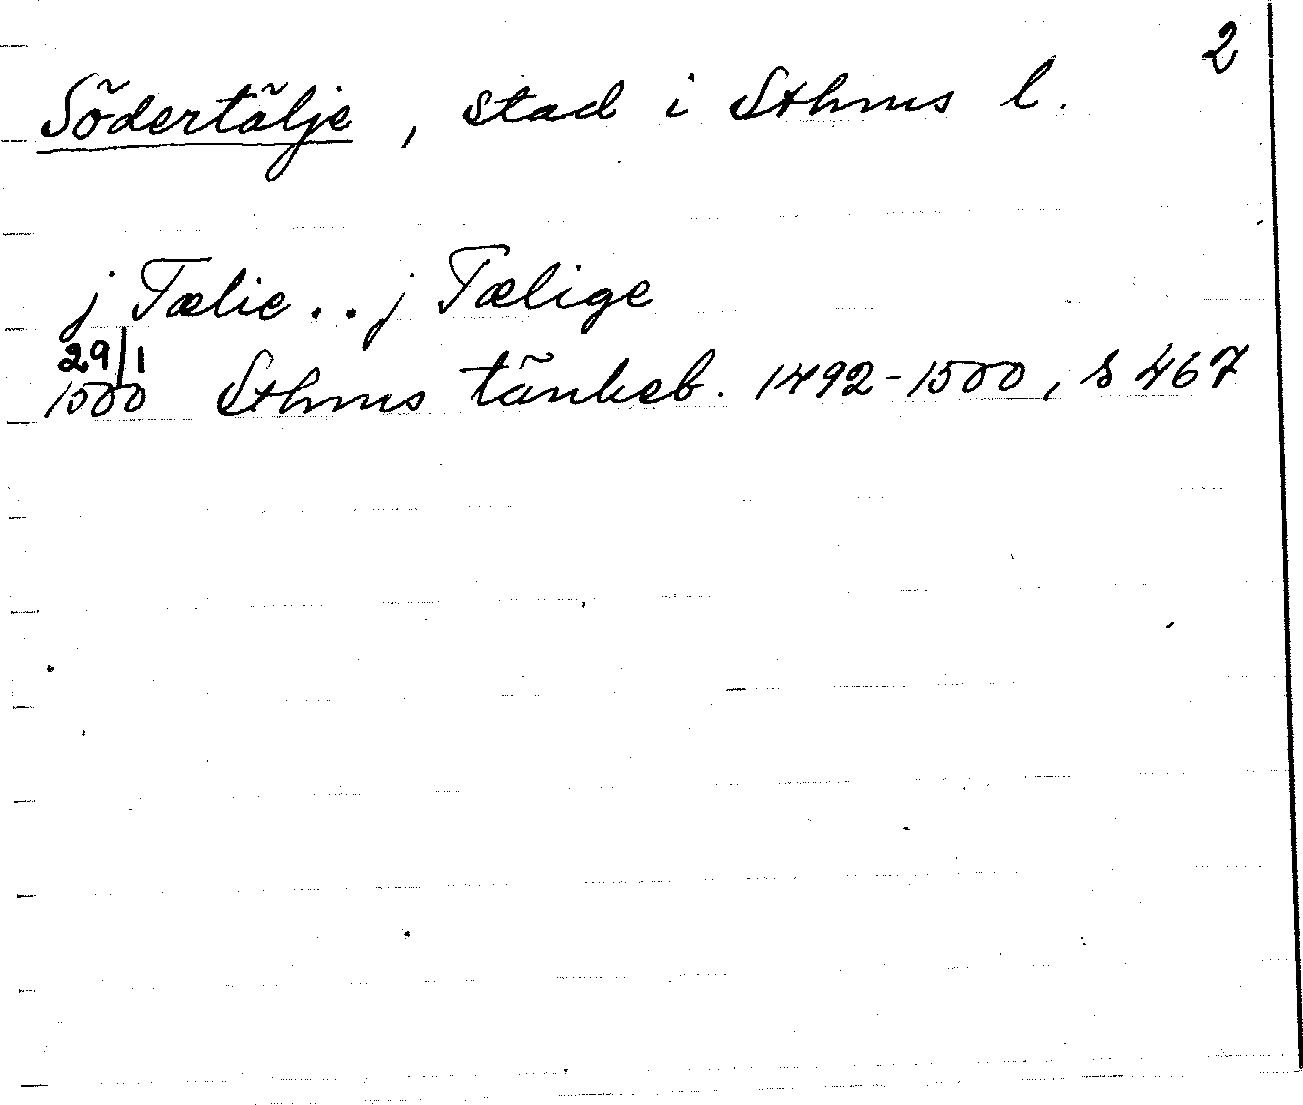 2
Södertälje, stad i Sthms l.
j Tælie . . j Tælige
29/1
1500 Sthms tänkeb. 1492-1500, s 467